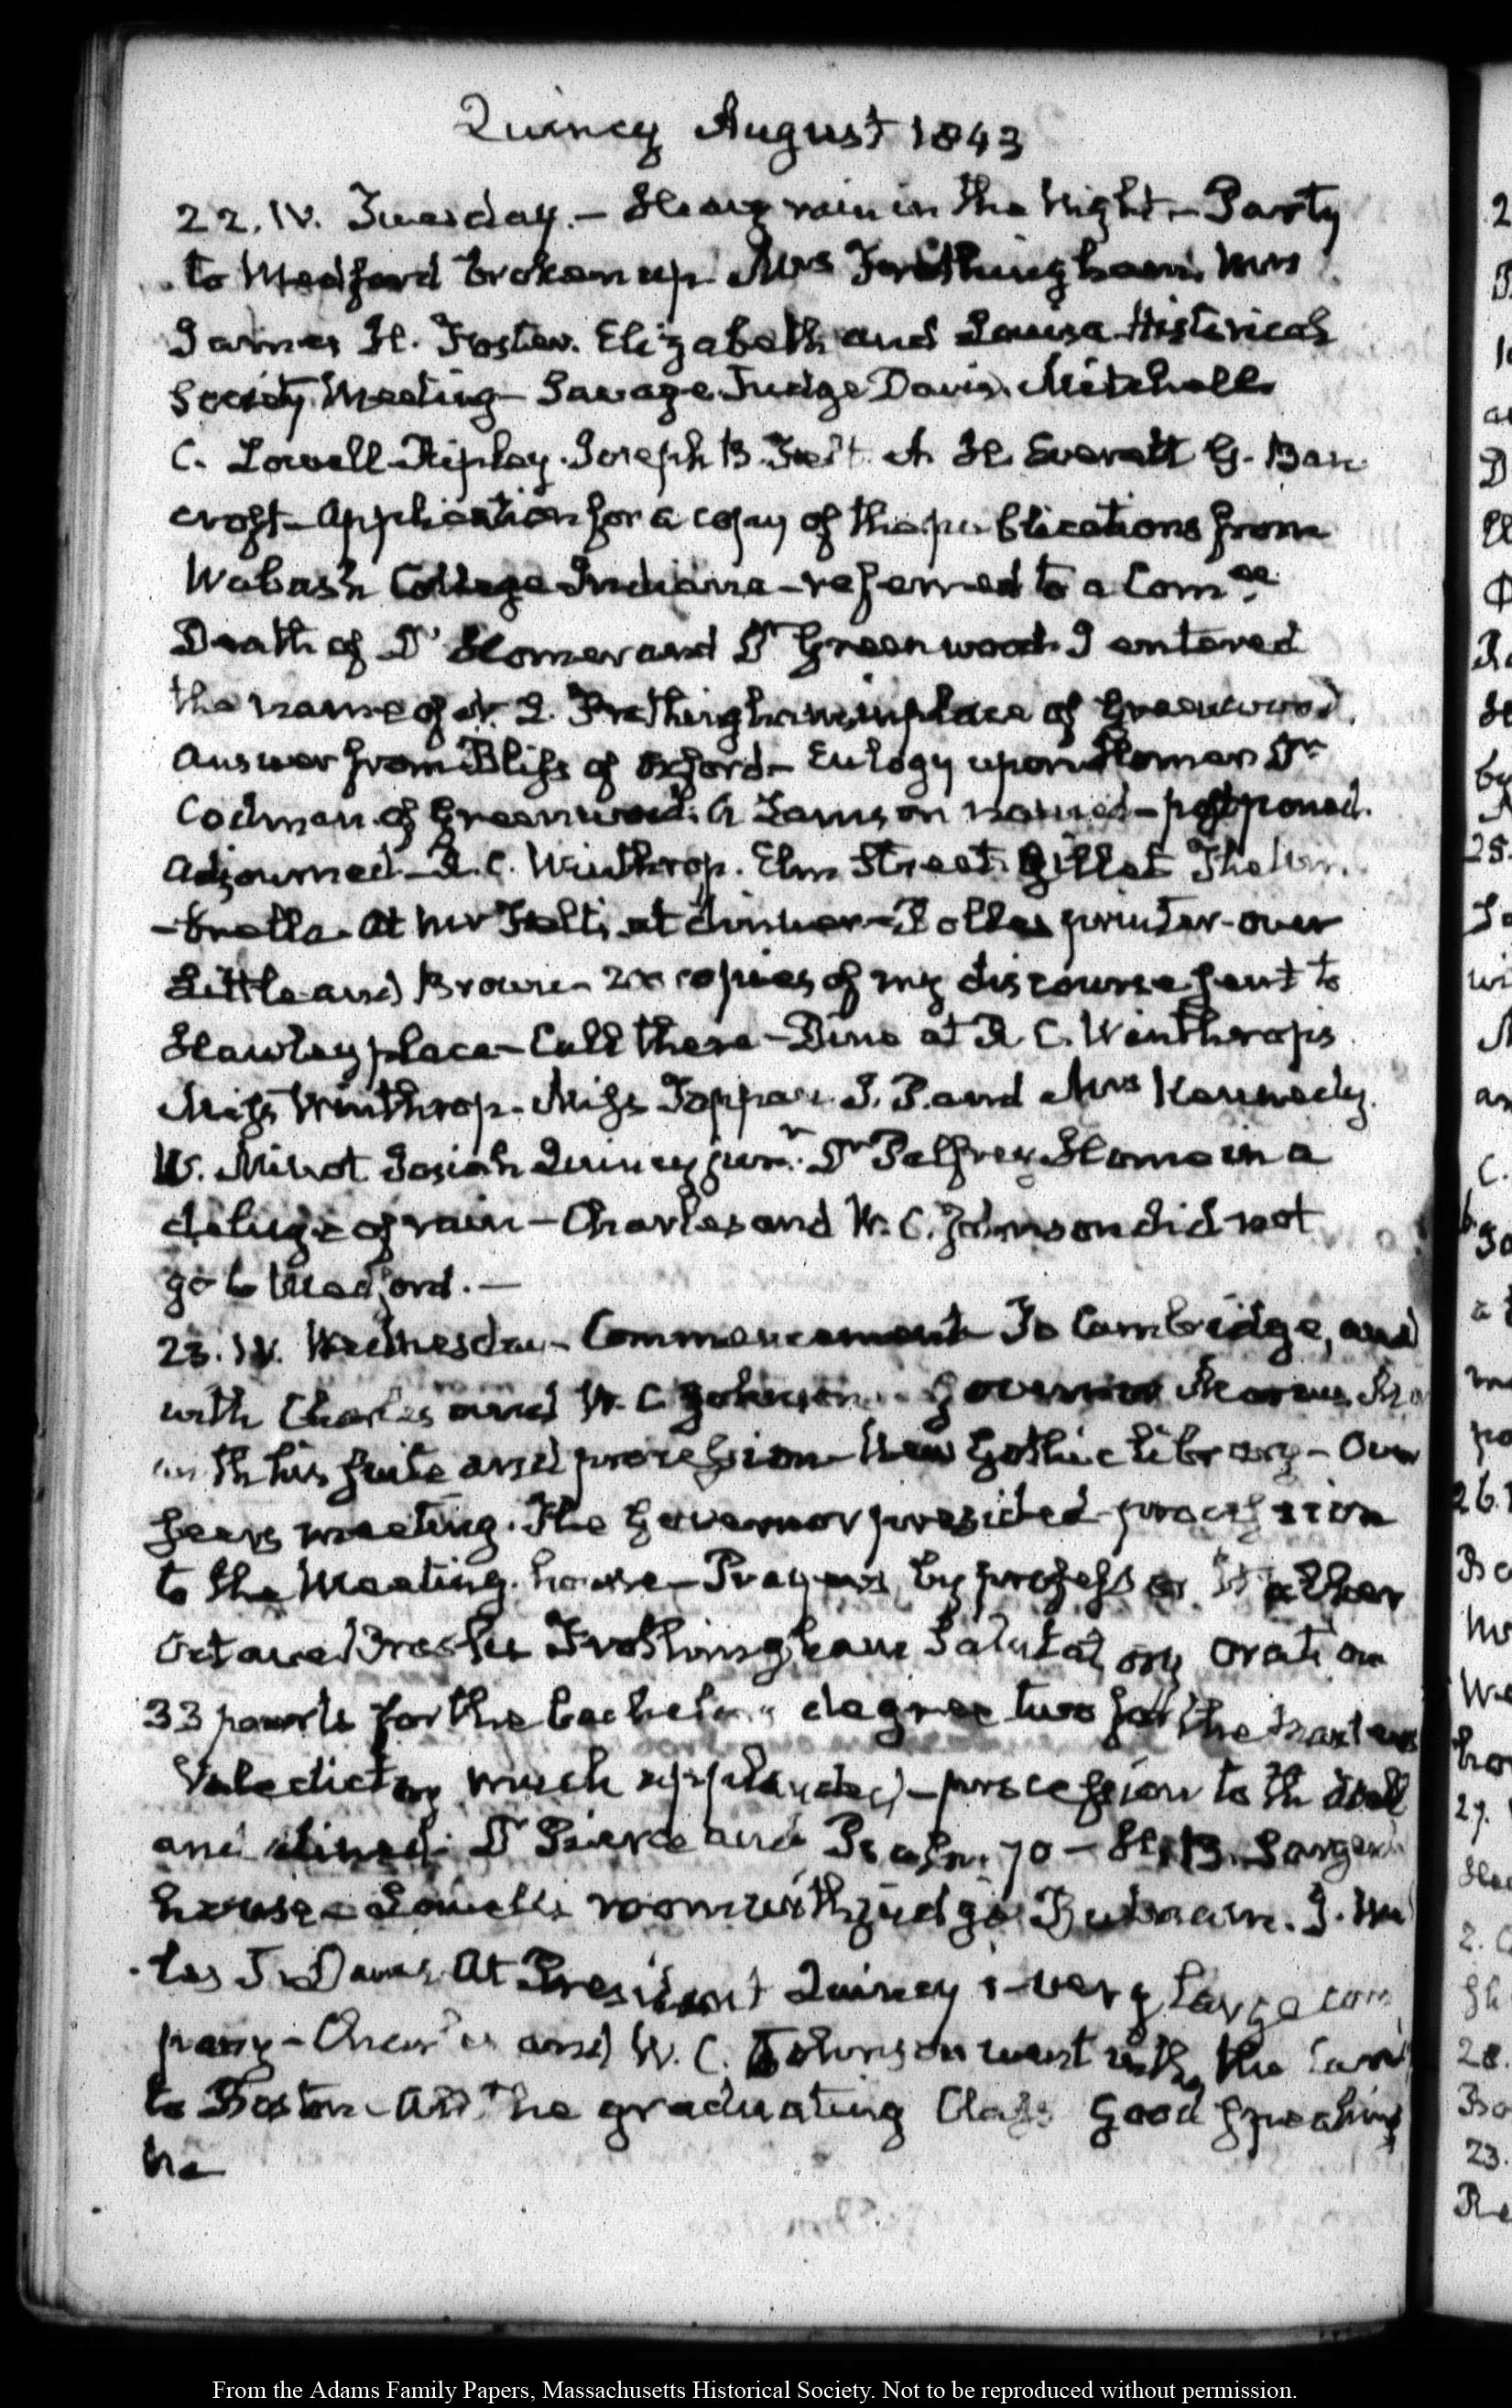 Quincy August 1843
22. IV. Tuesday.— Heavy rain in the Night — Party
to Medford broken up. Mrs Frothingham. Mrs
James H. Foster. Elizabeth and Louisa Historical
Society Meeting — Savage. Judge Davis. Mitchell
C. Lowell Ripley. Joseph B. Felt. A. H. Everett G. Ban
croft — Application for a copy of the publications from
Wabash College Indiana — referred to a Comee.
Death of Dr Homer and Dr Greenwood. I entered
the name of N. L. Frothingham in place of Greenwood.
Answer from Bliss of Oxford — Eulogy upon Homer Dr
Codman. of Greenwood. A Lamson named — postponed.
Adjourned — R. C. Winthrop. Elm Street. The Um
-brella. At Mr Felt's, at dinner — printer — over
Little and Brown — 200 copies of my discourse sent to
Hawley place — Call there — Dine at R. C. Winthrop's
Miss Winthrop. Miss Tappan. J. P. and Mrs Kennedy.
W. Minot Josiah Quincy junr. Dr Palfrey Home in a
deluge of rain — Charles and W. C. Johnson did not
go to Medford. —
23. IV. Wednesday — Commencement To Cambridge, and
with Charles and W. C. Johnson. Governor Marcus Mo
with his suite and procession New Gothic library — Over
seers meeting. The Governor presided procession
to the Meeting house — Prayers by professor
Octavius Brooks Frothingham Salutatory oration
33 parts for the bachelors degree two for the masters
Valedictory much applauded — procession to the Hall
and dined. Dr Pierce and Psalm. 70 — H. B. Sargent
house — room with judge Putnam. J.
J. Davis At President Quincy's — very large com
pany — Charles and W. C. Johnson went with the
to Boston — All the graduating Class good speaking
he
From the Adams Family Papers, Massachusetts Historical Society. Not to be reproduced without permission.